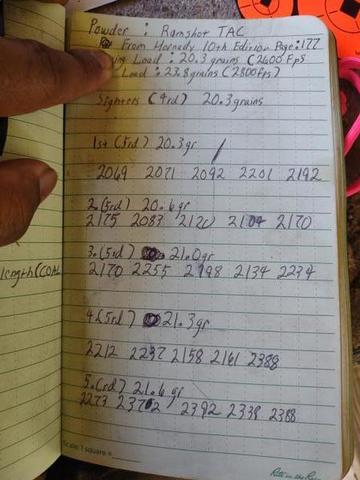 Powder : Ramshot TAC
From Hornady 10th Edition Page: 177
Load : 20.3 grains (2600 Fps
Load : 23.8 grains (2800 fps)
Sighters (4rd) 20.3 grains
1st (5rd) 20.3gr
2069 2071 2092 2201 2192
2. (5rd) 20.6gr
2175 2083 2120 2104 2170
3. (5rd) 21.0gr
2170 2255 2198 2134 2234
length (COAL
4. (5rd) 21.3gr
2212 2237 2158 2161 2388
5. (rd) 21.6gr
2273 2372 2392 2339 2388
Scale: 1 square =
Rite in the Rain